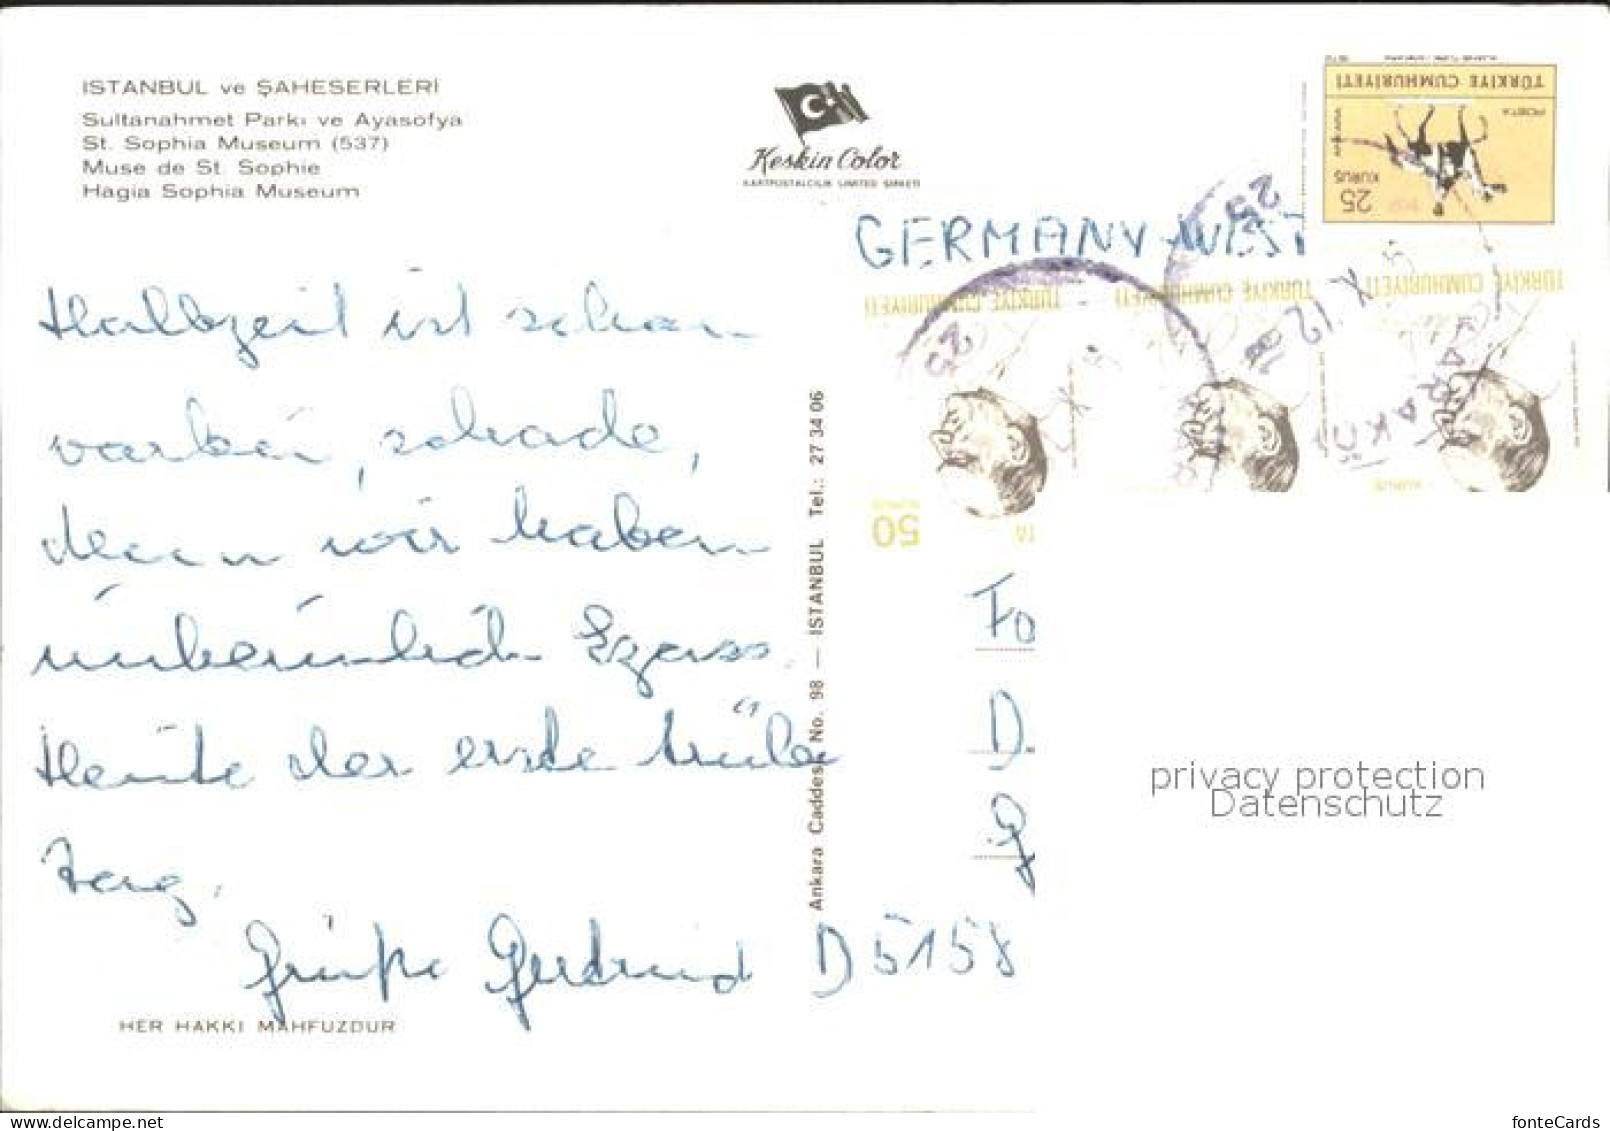 ISTANBUL ve ŞAHESERLERİ
Sultanahmet Parkı ve Ayasofya
St. Sophia Museum (537)
Muse de St. Sophie
Hagia Sophia Museum
Keskin Color
KARTPOSTALCILIK LIMITED ŞİRKETİ
TÜRKİYE CUMHURİYETİ
POSTA
25
KURUŞ
GERMANY WEST
TÜRKİYE CUMHURİYETİ
TÜRKİYE CUMHURİYETİ
TÜRKİYE CUMHURİYETİ
50
KURUŞ
Halbzeit ist schon
vorbei, schade,
denn wir haben
unheimlich Spass.
Heute der erste trübe
Tag.
Grüße Gertrud
Ankara Caddesi No. 98 — İSTANBUL Tel.: 27 34 06
Fo
D.
G
D 5158
privacy protection
Datenschutz
HER HAKKI MAHFUZDUR
fonteCards